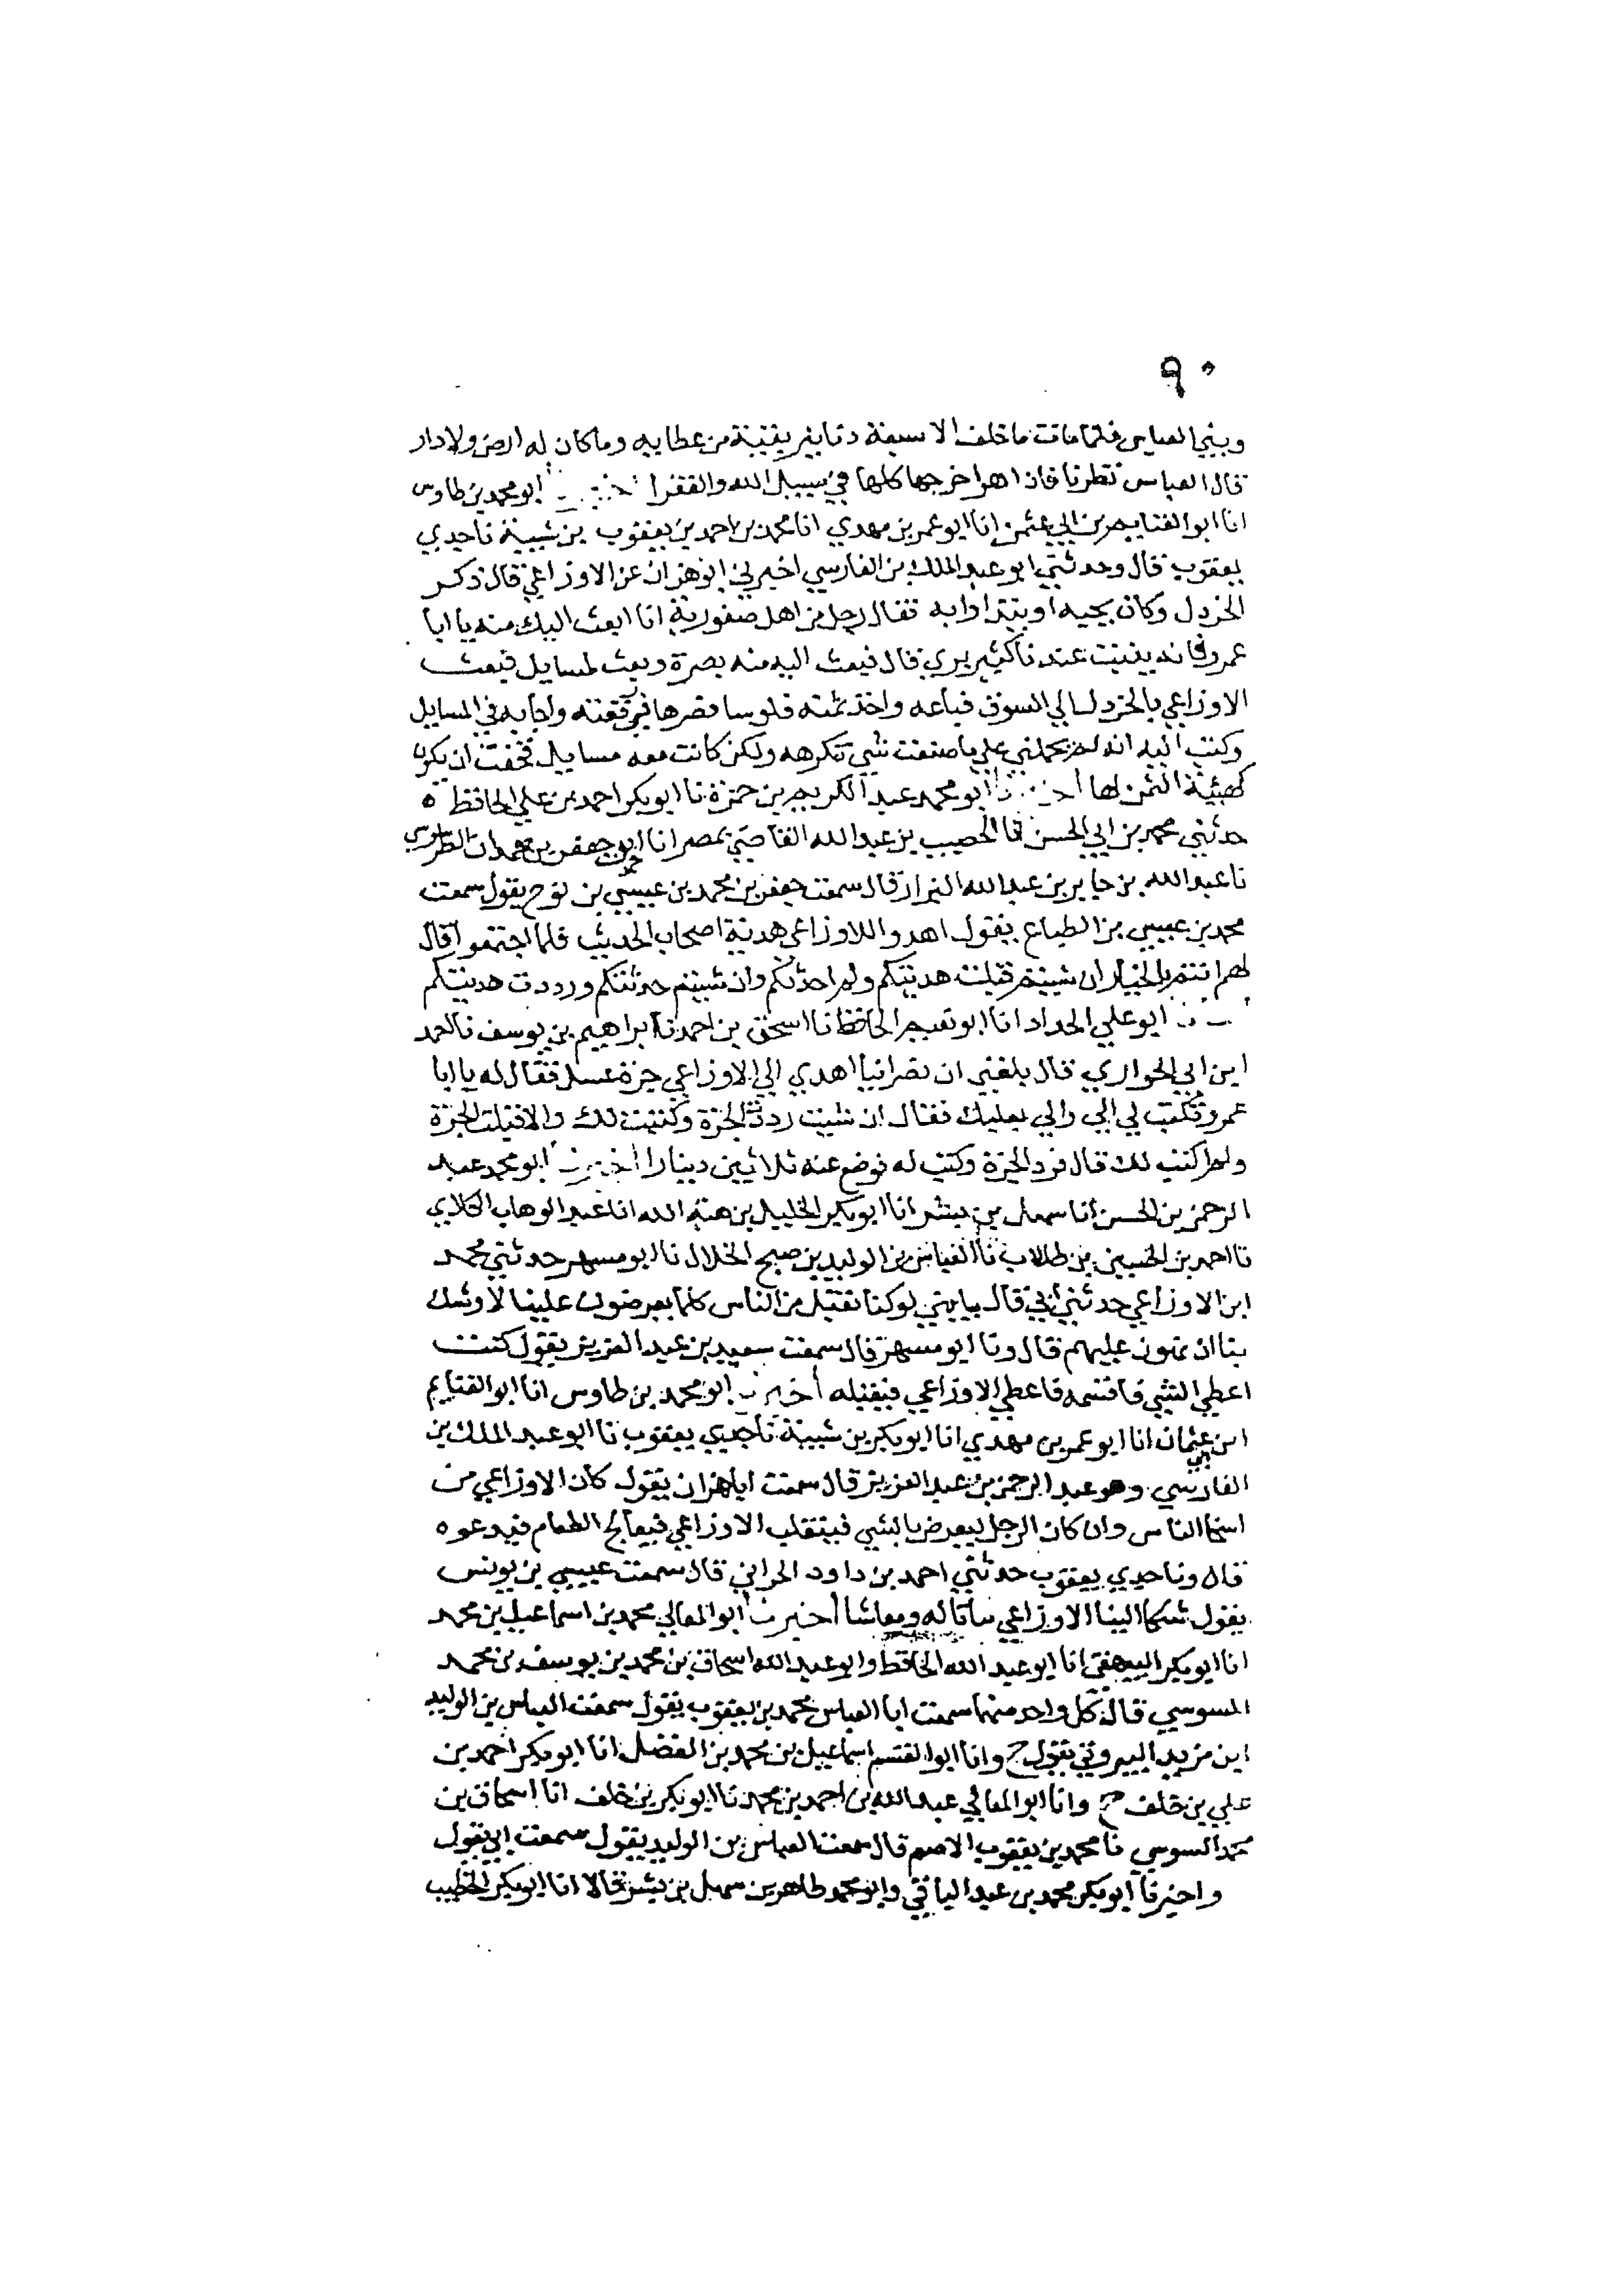 ٩٠
وبني العباس فلما مات ما خلف الا سبعة دنانير بقية من عطايه وما كان له ارض ولا دار
قال العباس نظرنا فاذا هو اخرجها كلها في سبيل الله والفقرا اخبرنا ابو محمد بن طاوس
انا ابو الغنايم بن ابي عثمن انا ابو عمر بن مهدي انا محمد بن احمد بن يعقوب بن شيبة نا جدي
يعقوب قال وحدثني ابو عبد الملك بن الفارسي اخبرني ابو هزان عن الاوزاعي قال ذكر
الخردل وكان يحبه او يتداوا به فقال رجل من اهل صفورية انا ابعث اليك منه يا ابا
عمرو فانه ينبت عندنا كثير بري قال فبعث اليه منه بصرة وبعث لمسايل فبعث
الاوزاعي بالخردل الي السوق فباعه واخذ ثمنه فلوسا فصرها في رقعته واجابه في المسايل
وكتب اليه انه لم يحملني علي ما صنعت شي تكرهه ولكن كانت معه مسايل فخفت ان يكون
كهيئة الثمن لها اخبرنا ابو محمد عبد الكريم بن حمزة نا ابو بكر احمد بن علي الحافظ ه
حدثني محمد بن ابي الحسن نا الخصيب بن عبد الله القاضي بمصر انا ابو جعفر بن حمدان الطرسوسي
نا عبد الله بن جابر بن عبد الله البزاز قال سمعت جعفر بن محمد بن عيسي بن نوح يقول سمعت
محمد بن عيسي بن الطباع يقول اهدوا للاوزاعي هدية اصحاب الحديث فلما اجتمعوا قال
لهم انتم بالخيار ان شيتم قبلت هديتكم ولم احدثكم وان شيتم حدثتكم ورددت هديتكم
ابو علي الحداد انا ابو نعيم الحافظ نا اسحق بن احمد نا ابراهيم بن يوسف نا احمد
ابن ابي الحواري قال بلغني ان نصرانيا اهدي الي الاوزاعي جرة عسل فقال له يا ابا
عمرو تكتب لي الي والي بعلبك فقال ان شيت رددت الجرة وكتبت لك والا قبلت الجرة
ولم اكتب لك قال فرد الجرة وكتب له فوضع عنه ثلاثين دينارا اخبرنا ابو محمد عبد
الرحمن بن الحسن انا سهل بن بشر انا ابو بكر الخليل بن هبة الله انا عبد الوهاب الكلابي
نا احمد بن الحسين بن طلاب نا العباس بن الوليد بن صبح الخلال نا ابو مسهر حدثني محمد
ابن الاوزاعي حدثني ابي قال يا بني لو كنا نقبل من الناس كلما يعرضون علينا لاوشك
بنا ان نهون عليهم قال ونا ابو مسهر قال سمعت سعيد بن عبد العزيز يقول كنت
اعطي الشي فاقسمه فاعطي الاوزاعي فيقبله اخبرنا ابو محمد بن طاوس انا ابو الغنايم
ابن ابي عثمان انا ابو عمر بن مهدي انا ابو بكر بن شيبة نا جدي يعقوب نا ابو عبد الملك بن
الفارسي وهو عبد الرحمن بن عبد العزيز قال سمعت ابا هزان يقول كان الاوزاعي من
اسخا الناس وان كان الرجل ليعرض بالشي فينقلب الاوزاعي فيعالج الطعام فيدعوه
قال ونا جدي يعقوب حدثني احمد بن داود الحراني قال سمعت عيسي بن يونس
يقول شكا الينا الاوزاعي ومعاشا اخبرنا ابو المعالي محمد بن اسماعيل بن محمد
انا ابو بكر البيهقي انا ابو عبد الله الحافظ وابو عبد الله اسحاق بن محمد بن يوسف بن محمد
السوسي قال كل واحد منهما سمعت ابا العباس محمد بن يعقوب يقول سمعت العباس بن الوليد
ابن مزيد البيروتي يقول ح وانا ابو القسم اسماعيل بن محمد بن الفضل انا ابو بكر احمد بن
علي بن خلف ح وانا ابو المعالي عبد الله بن احمد بن محمد نا ابو بكر بن خلف انا اسحاق بن
محمد السوسي نا محمد بن يعقوب الاصم قال سمعت العباس بن الوليد يقول سمعت ابي يقول
واخبرنا ابو بكر محمد بن عبد الباقي وابو محمد طاهر بن سهل بن بشر قالا انا ابو بكر الخطيب